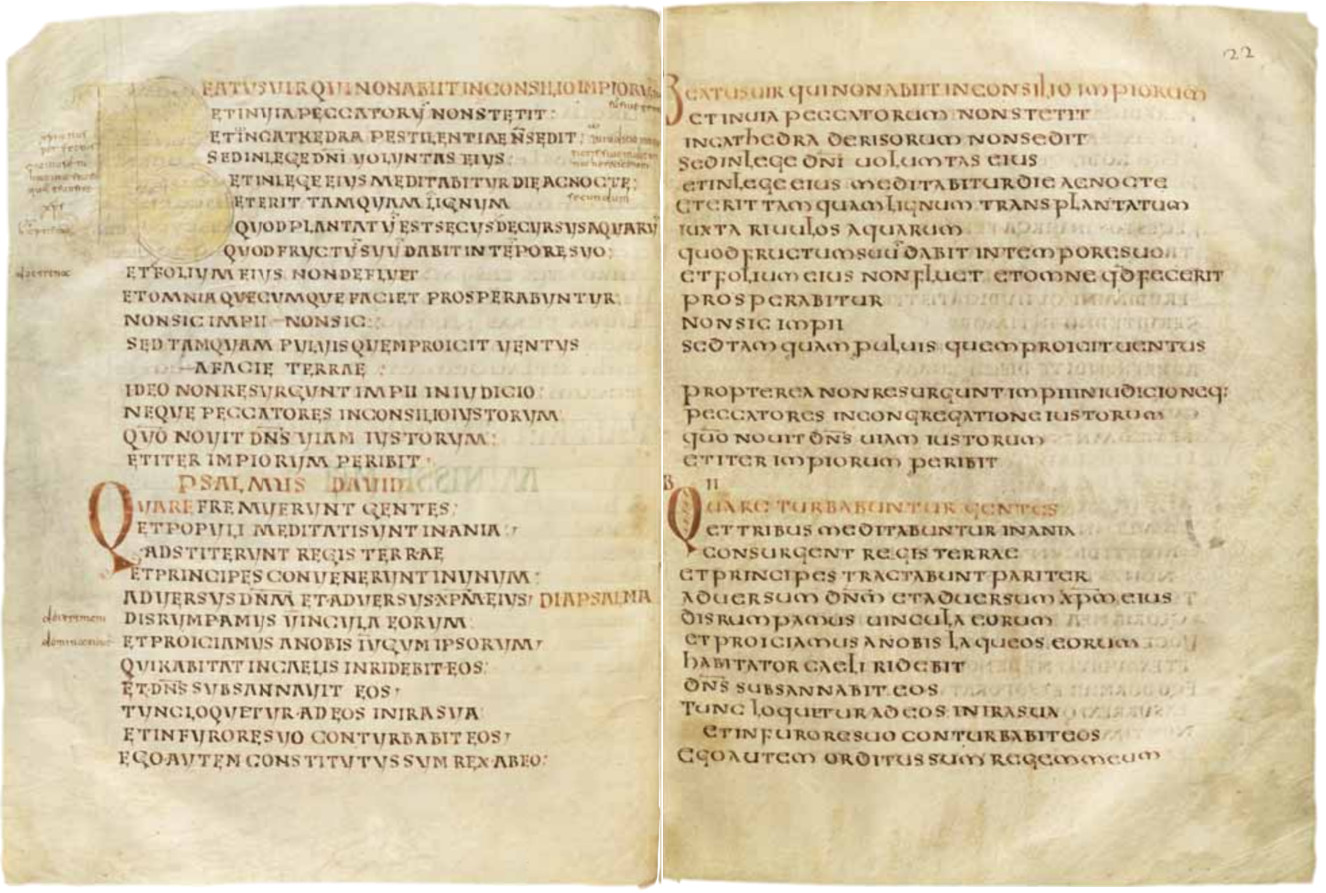 BEATUS UIR QUI NON ABIIT IN CONSILIO IMPIORUM
ET IN UIA PECCATORŪ NON STETIT:
ET IN CATHEDRA PESTILENTIAE N̄ SEDIT:
SED IN LEGE DN̄I UOLUNTAS EIUS:
ET IN LEGE EIUS MEDITABITUR DIE AC NOCTE:
ET ERIT TAMQUAM LIGNUM
QUOD PLANTATŪ EST SECUS DECURSUS AQUARŪ
QUOD FRUCTŪ SUŪ DABIT IN TĒPORE SUO:
ET FOLIUM EIUS NON DEFLUET
ET OMNIA QUECUMQUE FACIET PROSPERABUNTUR:
NON SIC IMPII NON SIC:
SED TAMQUAM PULUIS QUEM PROICIT UENTUS
A FACIE TERRAE:
IDEO NON RESURGUNT IMPII IN IUDICIO:
NEQUE PECCATORES IN CONSILIO IUSTORUM:
QUŌ NOUIT DN̄S UIAM IUSTORUM:
ET ITER IMPIORUM PERIBIT:
PSALMUS DAVID
QUARE FREMUERUNT GENTES:
ET POPULI MEDITATI SUNT INANIA:
ADSTITERUNT REGIS TERRAE
ET PRINCIPES CONUENERUNT IN UNUM:
ADUERSUS DN̄M ET ADUERSUS XP̄M EIUS: DIAPSALMA
DISRUMPAMUS UINCULA EORUM:
ET PROICIAMUS A NOBIS IUGUM IPSORUM:
QUI HABITAT IN CAELIS INRIDEBIT EOS:
ET DN̄S SUBSANNAUIT EOS:
TUNC LOQUETUR AD EOS IN IRA SUA:
ET IN FURORE SUO CONTURBABIT EOS:
EGO AUTEM CONSTITUTUS SUM REX AB EO:
22
BEATUS UIR QUI NON ABIIT IN CONSILIO IMPIORUM
ET IN UIA PECCATORUM NON STETIT
IN CATHEDRA DERISORUM NON SEDIT
SED IN LEGE DN̄I UOLUMTAS EIUS
ET IN LEGE EIUS MEDITABITUR DIE AC NOCTE
ET ERIT TAMQUAM LIGNUM TRANSPLANTATUM
IUXTA RIUULOS AQUARUM
QUOD FRUCTUM SUŪ DABIT IN TEMPORE SUO
ET FOLIUM EIUS NON FLUET ET OMNE QD̄ FECERIT
PROSPERABITUR
NON SIC IMPII
SED TAMQUAM PULUIS QUEM PROICIT UENTUS
PROPTEREA NON RESURGUNT IMPII IN IUDICIO NEQ:
PECCATORES IN CONGREGATIONE IUSTORUM
QUŌ NOUIT DN̄S UIAM IUSTORUM
ET ITER IMPIORUM PERIBIT
II
QUARE TURBABUNTUR GENTES
ET TRIBUS MEDITABUNTUR INANIA
CONSURGENT REGIS TERRAE
ET PRINCIPES TRACTABUNT PARITER
ADUERSUM DN̄M ET ADUERSUM XP̄M EIUS
DISRUMPAMUS UINCULA EORUM
ET PROICIAMUS A NOBIS LAQUEOS EORUM
HABITATOR CAELI RIDEBIT
DN̄S SUBSANNABIT EOS
TUNC LOQUETUR AD EOS IN IRA SUA
ET IN FURORE SUO CONTURBABIT EOS
EGO AUTEM ORDITUS SUM REGEM MEUM